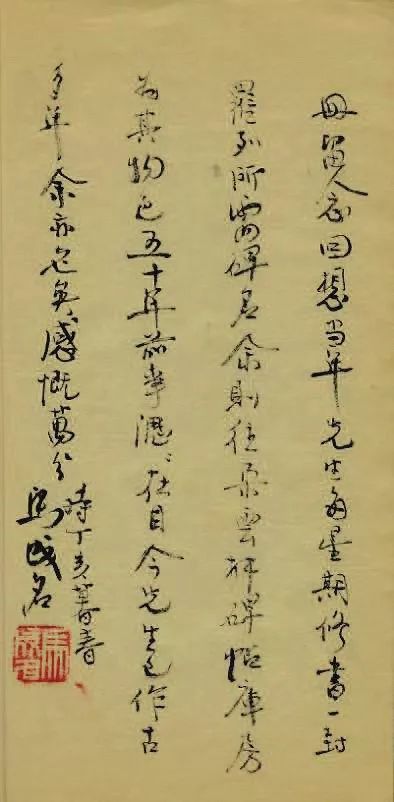 册留念回想当年先生每星期修書一封
羅列所需碑名余則往朵雲軒碑帖庫房
為其物色五十年前事歷〻在目今先生已作古
多年余亦老矣感慨萬分
時丁亥暮春
馬成名